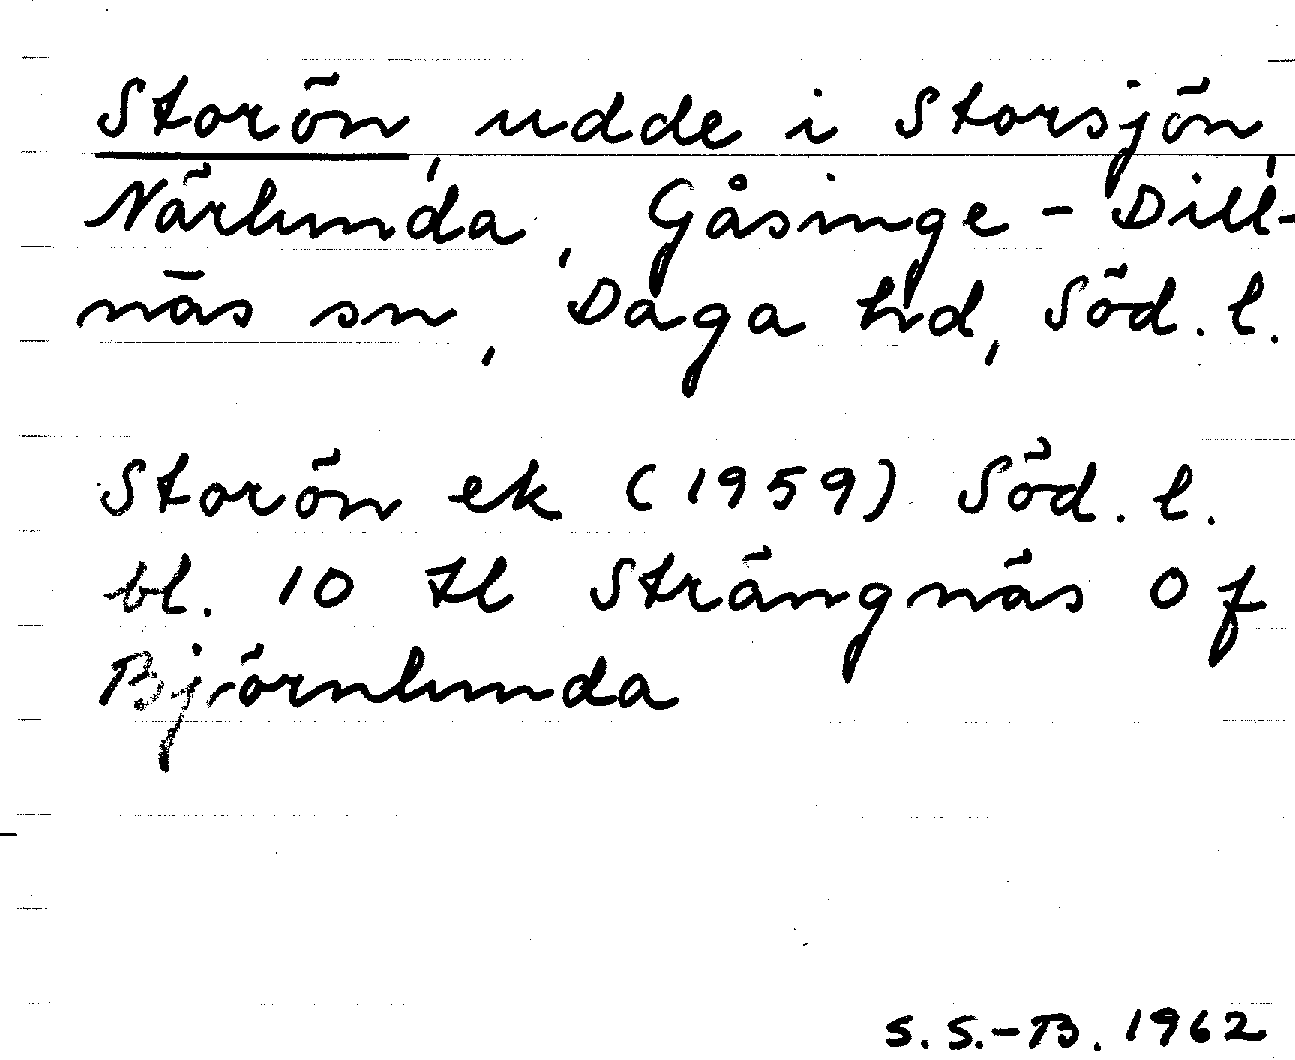 Storön, udde i Storsjön,
Närlunda, Gåsinge-Dill-
näs sn, Daga hd, Söd. l.
Storön ek (1959) Söd. l.
bl. 10 tl Strängnäs 0 f
Björnlunda
S. S.-B. 1962